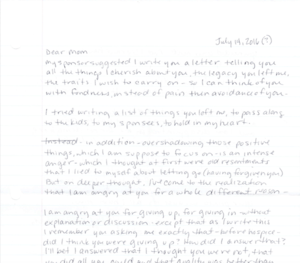 July 19, 2016 (?)
Dear Mom
my sponsor suggested I write you a letter telling you
all the things I cherish about you, the legacy you left me,
the traits I wish to carry on - so I can think of you
with fondness, instead of pain then avoidance of you.
I tried writing a list of things you left me, to pass along
to the kids, to my sponsees, to hold in my heart.
Instead - in addition - overshadowing those positive
things, which I am suppose to focus on - is an intense
anger - which I thought at first were old resentments
that I lied to myself about letting go (having forgiven you)
But on deeper thought, I've come to the realization
that I am angry at you for a whole different reason -
I am angry at you for giving up, for giving in without
explanation or discussion. except that as I write this
I remember you asking me exactly that - before hospice -
did I think you were giving up? How did I answer that?
I'll bet I answered that I thought you were not, that
you did all you could and that quality was better than